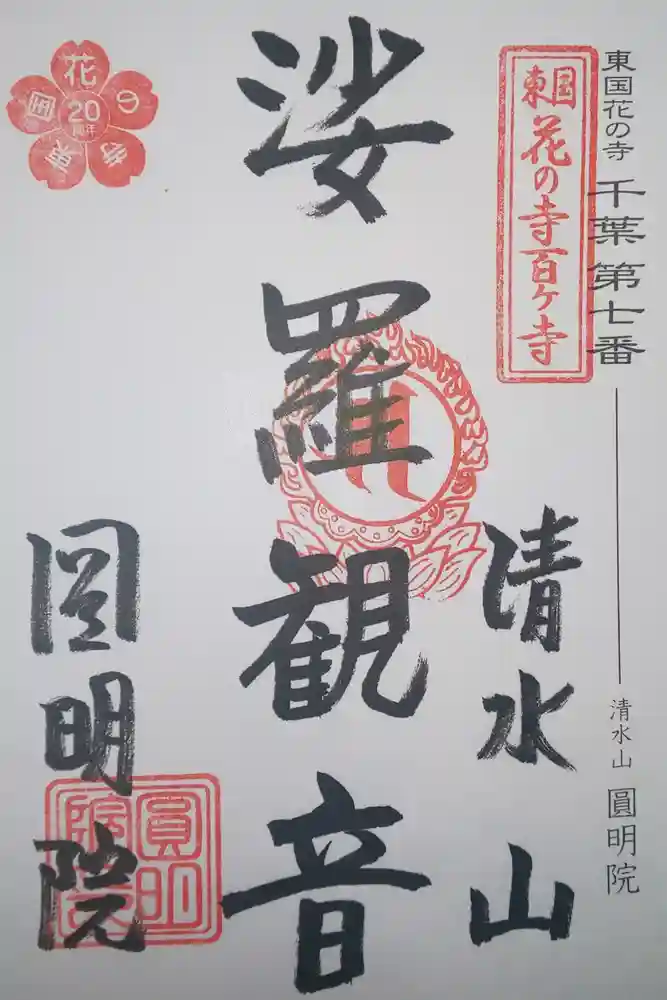 東国花の寺 千葉第七番
清水山 圓明院
東国花の寺百ヶ寺
清水山
娑羅観音
圓明院
花の寺東国
20周年
圓明院印